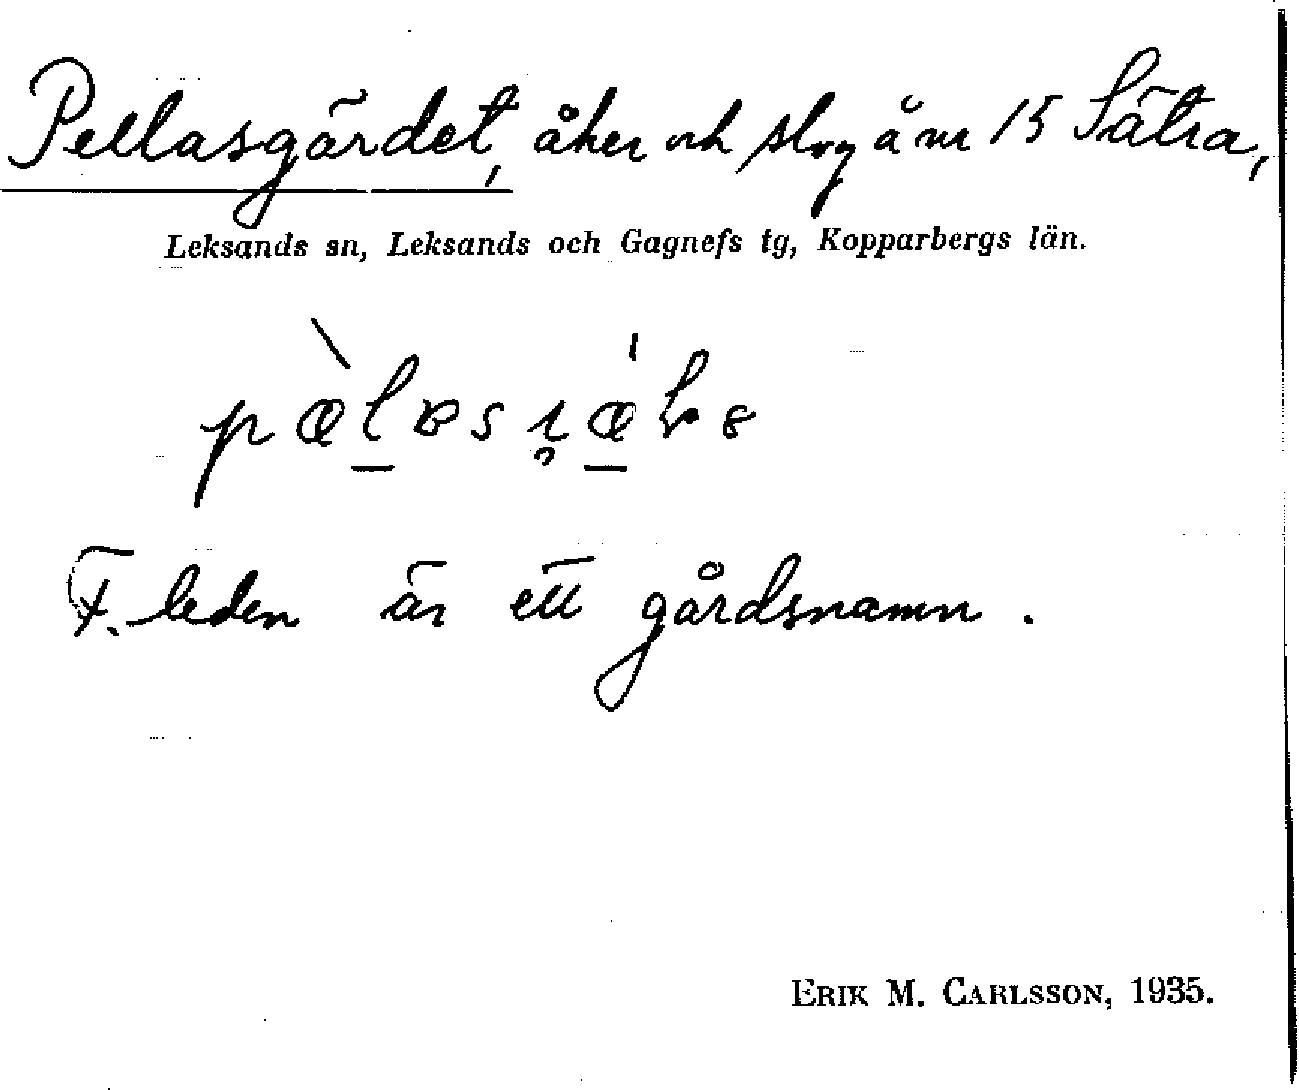 Pellasgärdet, åker och slog å nr 15 Sätra,
Leksands sn, Leksands och Gagnefs tg, Kopparbergs län.
F. leden är ett gårdsnamn.
ERIK M. CARLSSON, 1935.